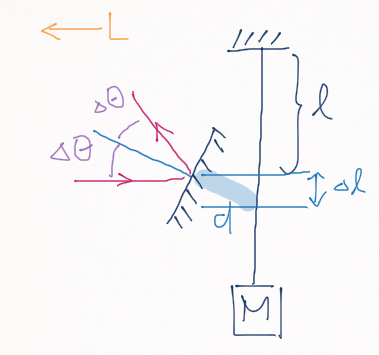 L
Δθ
l
Δθ
Δl
d
M